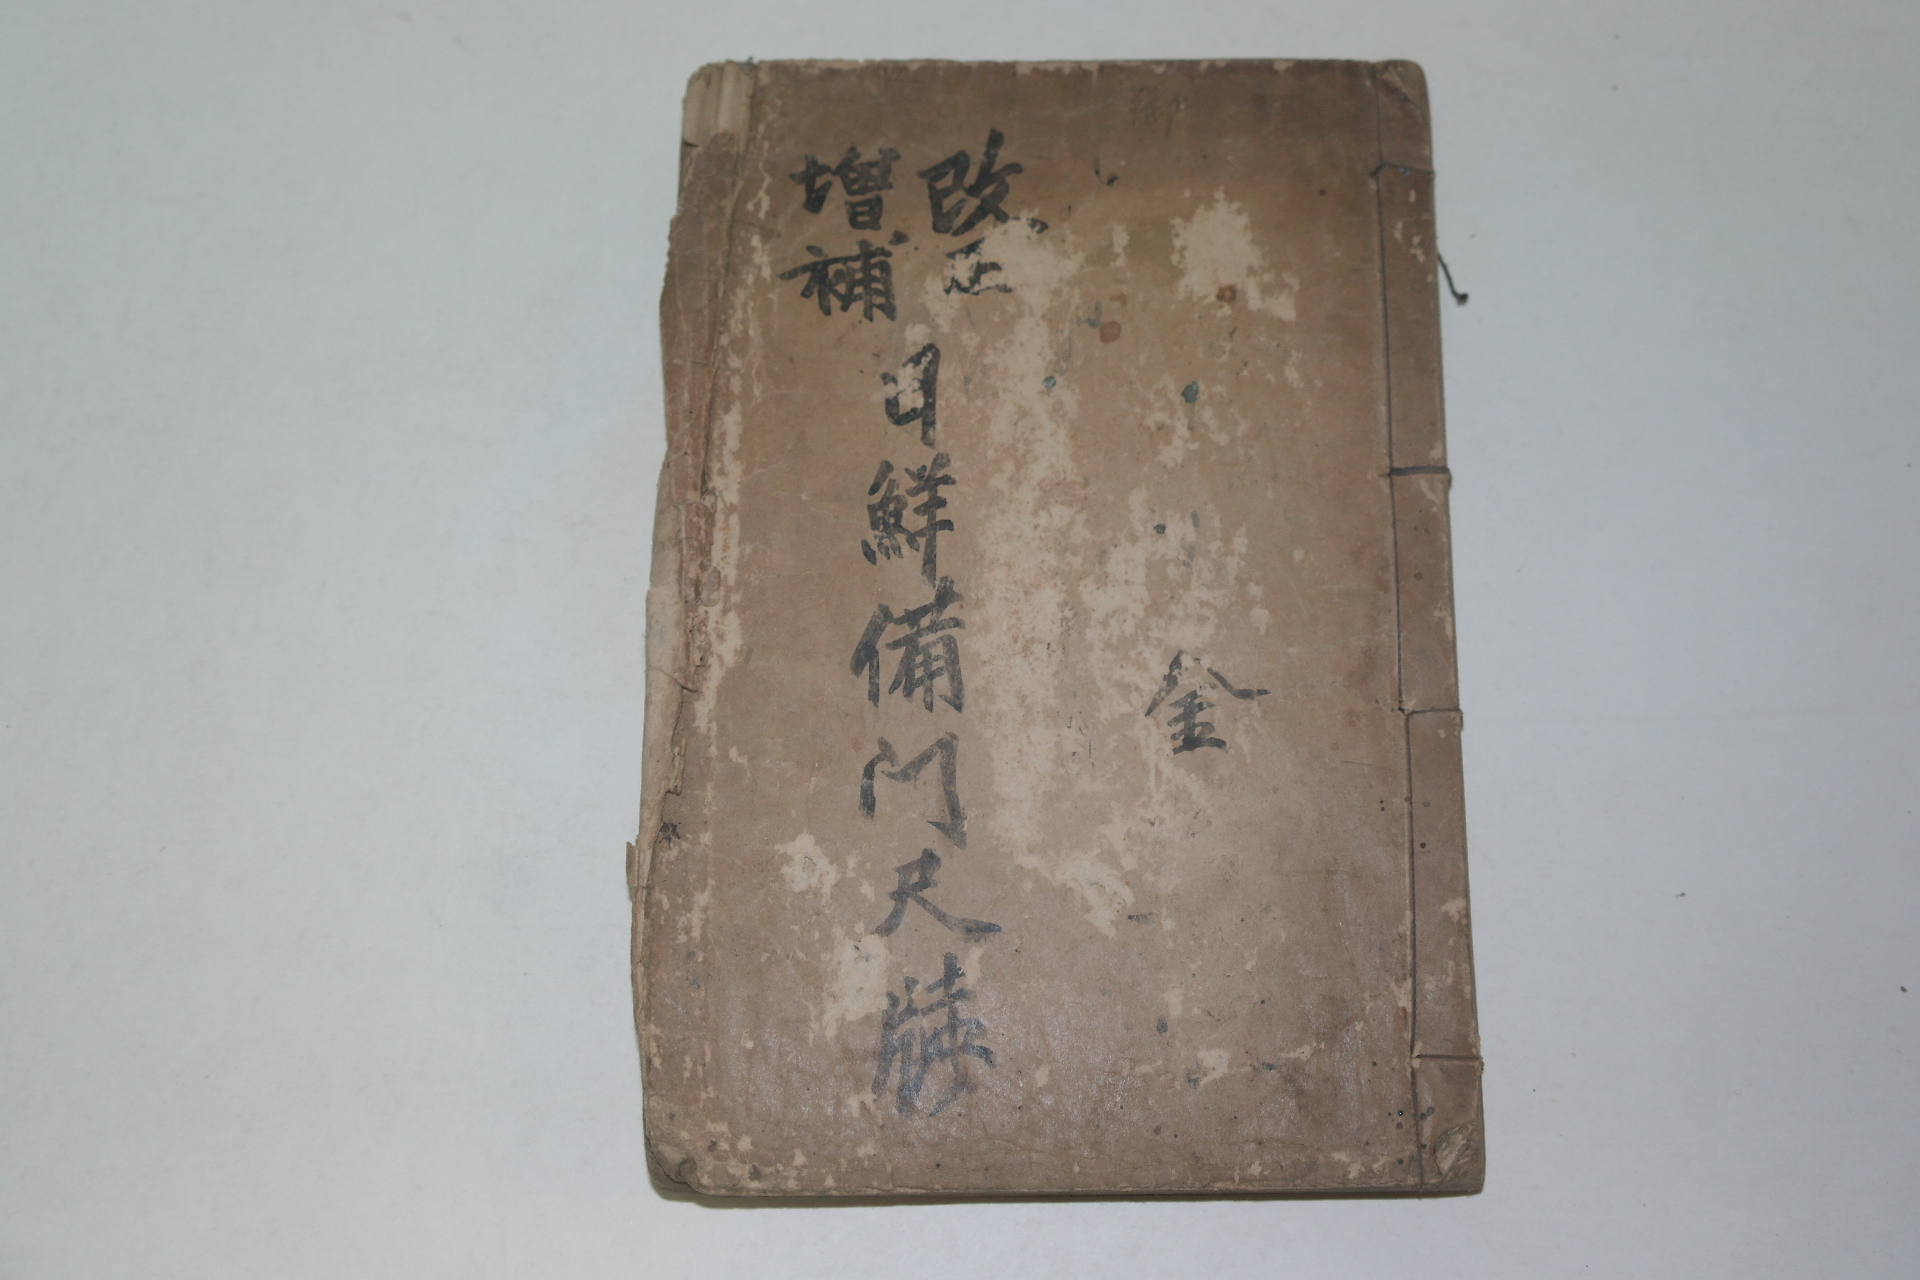 金
改正
增補
日鮮備門尺牘